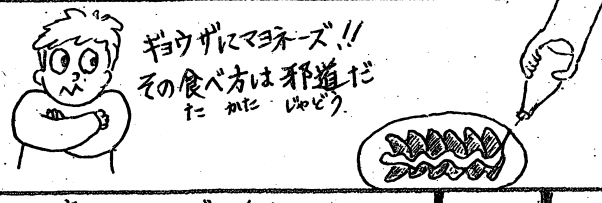 ギョウザにマヨネーズ!!
その食べ方は邪道だ
た かた じゃどう